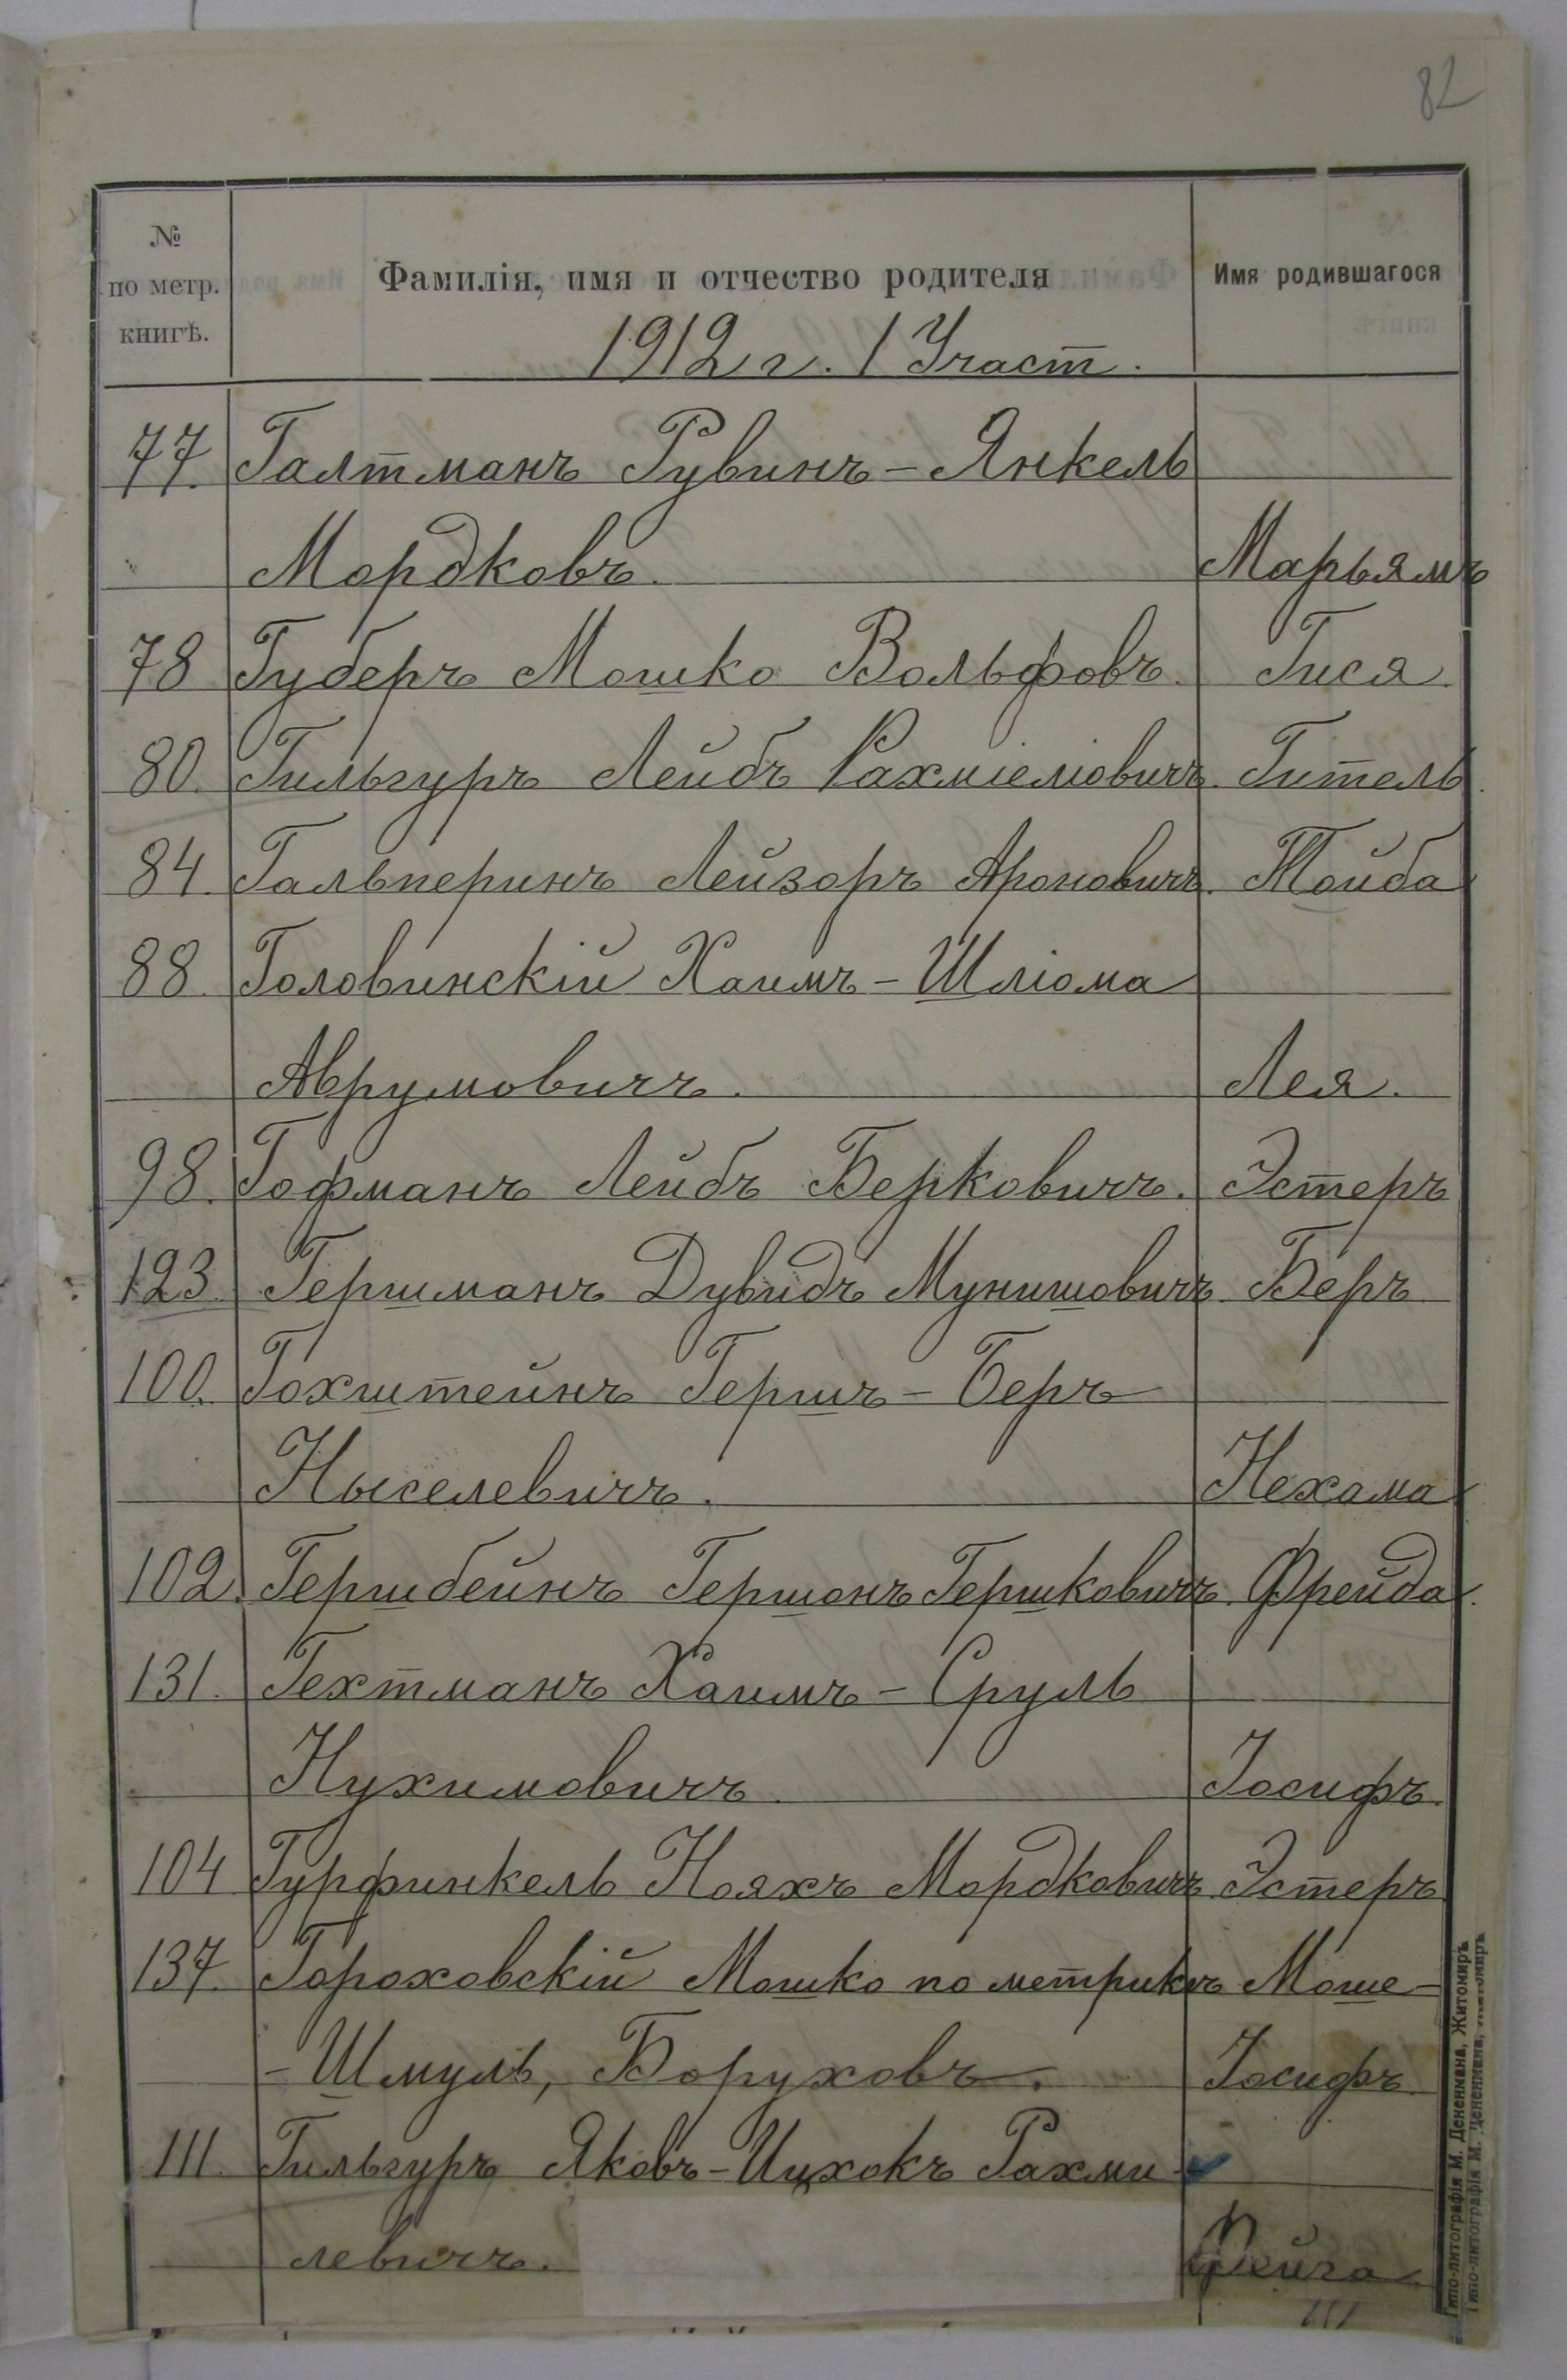 82
№ по метр. книгѣ. Фамилія, имя и отчество родителя Имя родившагося
1912 г. 1 Участ.
77. Галтманъ Рувинъ-Янкель
Мордковъ. Марьямъ
78 Губеръ Мошко Вольфовъ. Гися.
80. Гильгуръ Лейбъ Рахміеліовичъ. Гитель.
84. Гальперинъ Лейзоръ Ароновичъ. Тойба
88. Головинскій Хаимъ-Шліома
Аврумовичъ. Лея.
98. Гофманъ Лейбъ Берковичъ. Эстеръ
123. Гершманъ Дувидъ Мунишовичъ. Беръ
100. Гохштейнъ Гершъ-Беръ
Ныселевичъ. Нехама
102. Гершбейнъ Гершонъ Гершковичъ. Фрейда.
131. Гехтманъ Хаимъ-Сруль
Нухимовичъ. Іосифъ.
104 Гурфинкель Нояхъ Мордковичъ. Эстеръ
137. Гороховскій Мошко по метрикѣ Моше-
-Шмуль, Боруховъ. Іосифъ.
111. Гильгуръ Яковъ-Ицхокъ Рахми-
левичъ. Фейга
Типо-литографія М. Дененмана, Житомиръ
Типо-литографія М. Дененмана, Житомиръ